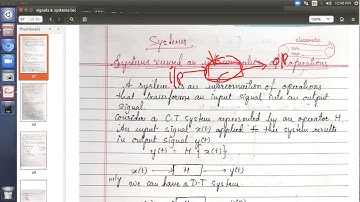 12:46 PM
signals & systems lec
Thumbnails
classmate
Systems
Systems viewed as interconnection of operations
I/P
O/P
A system is an interconnection of operations
that transforms an input signal into an output
signal.
Consider a C.T system represented by an operator H.
An input signal x(t) applied to the system results
in output signal y(t)
y(t) = H { x(t) }
x(t) → H → y(t)
we can have a D.T system